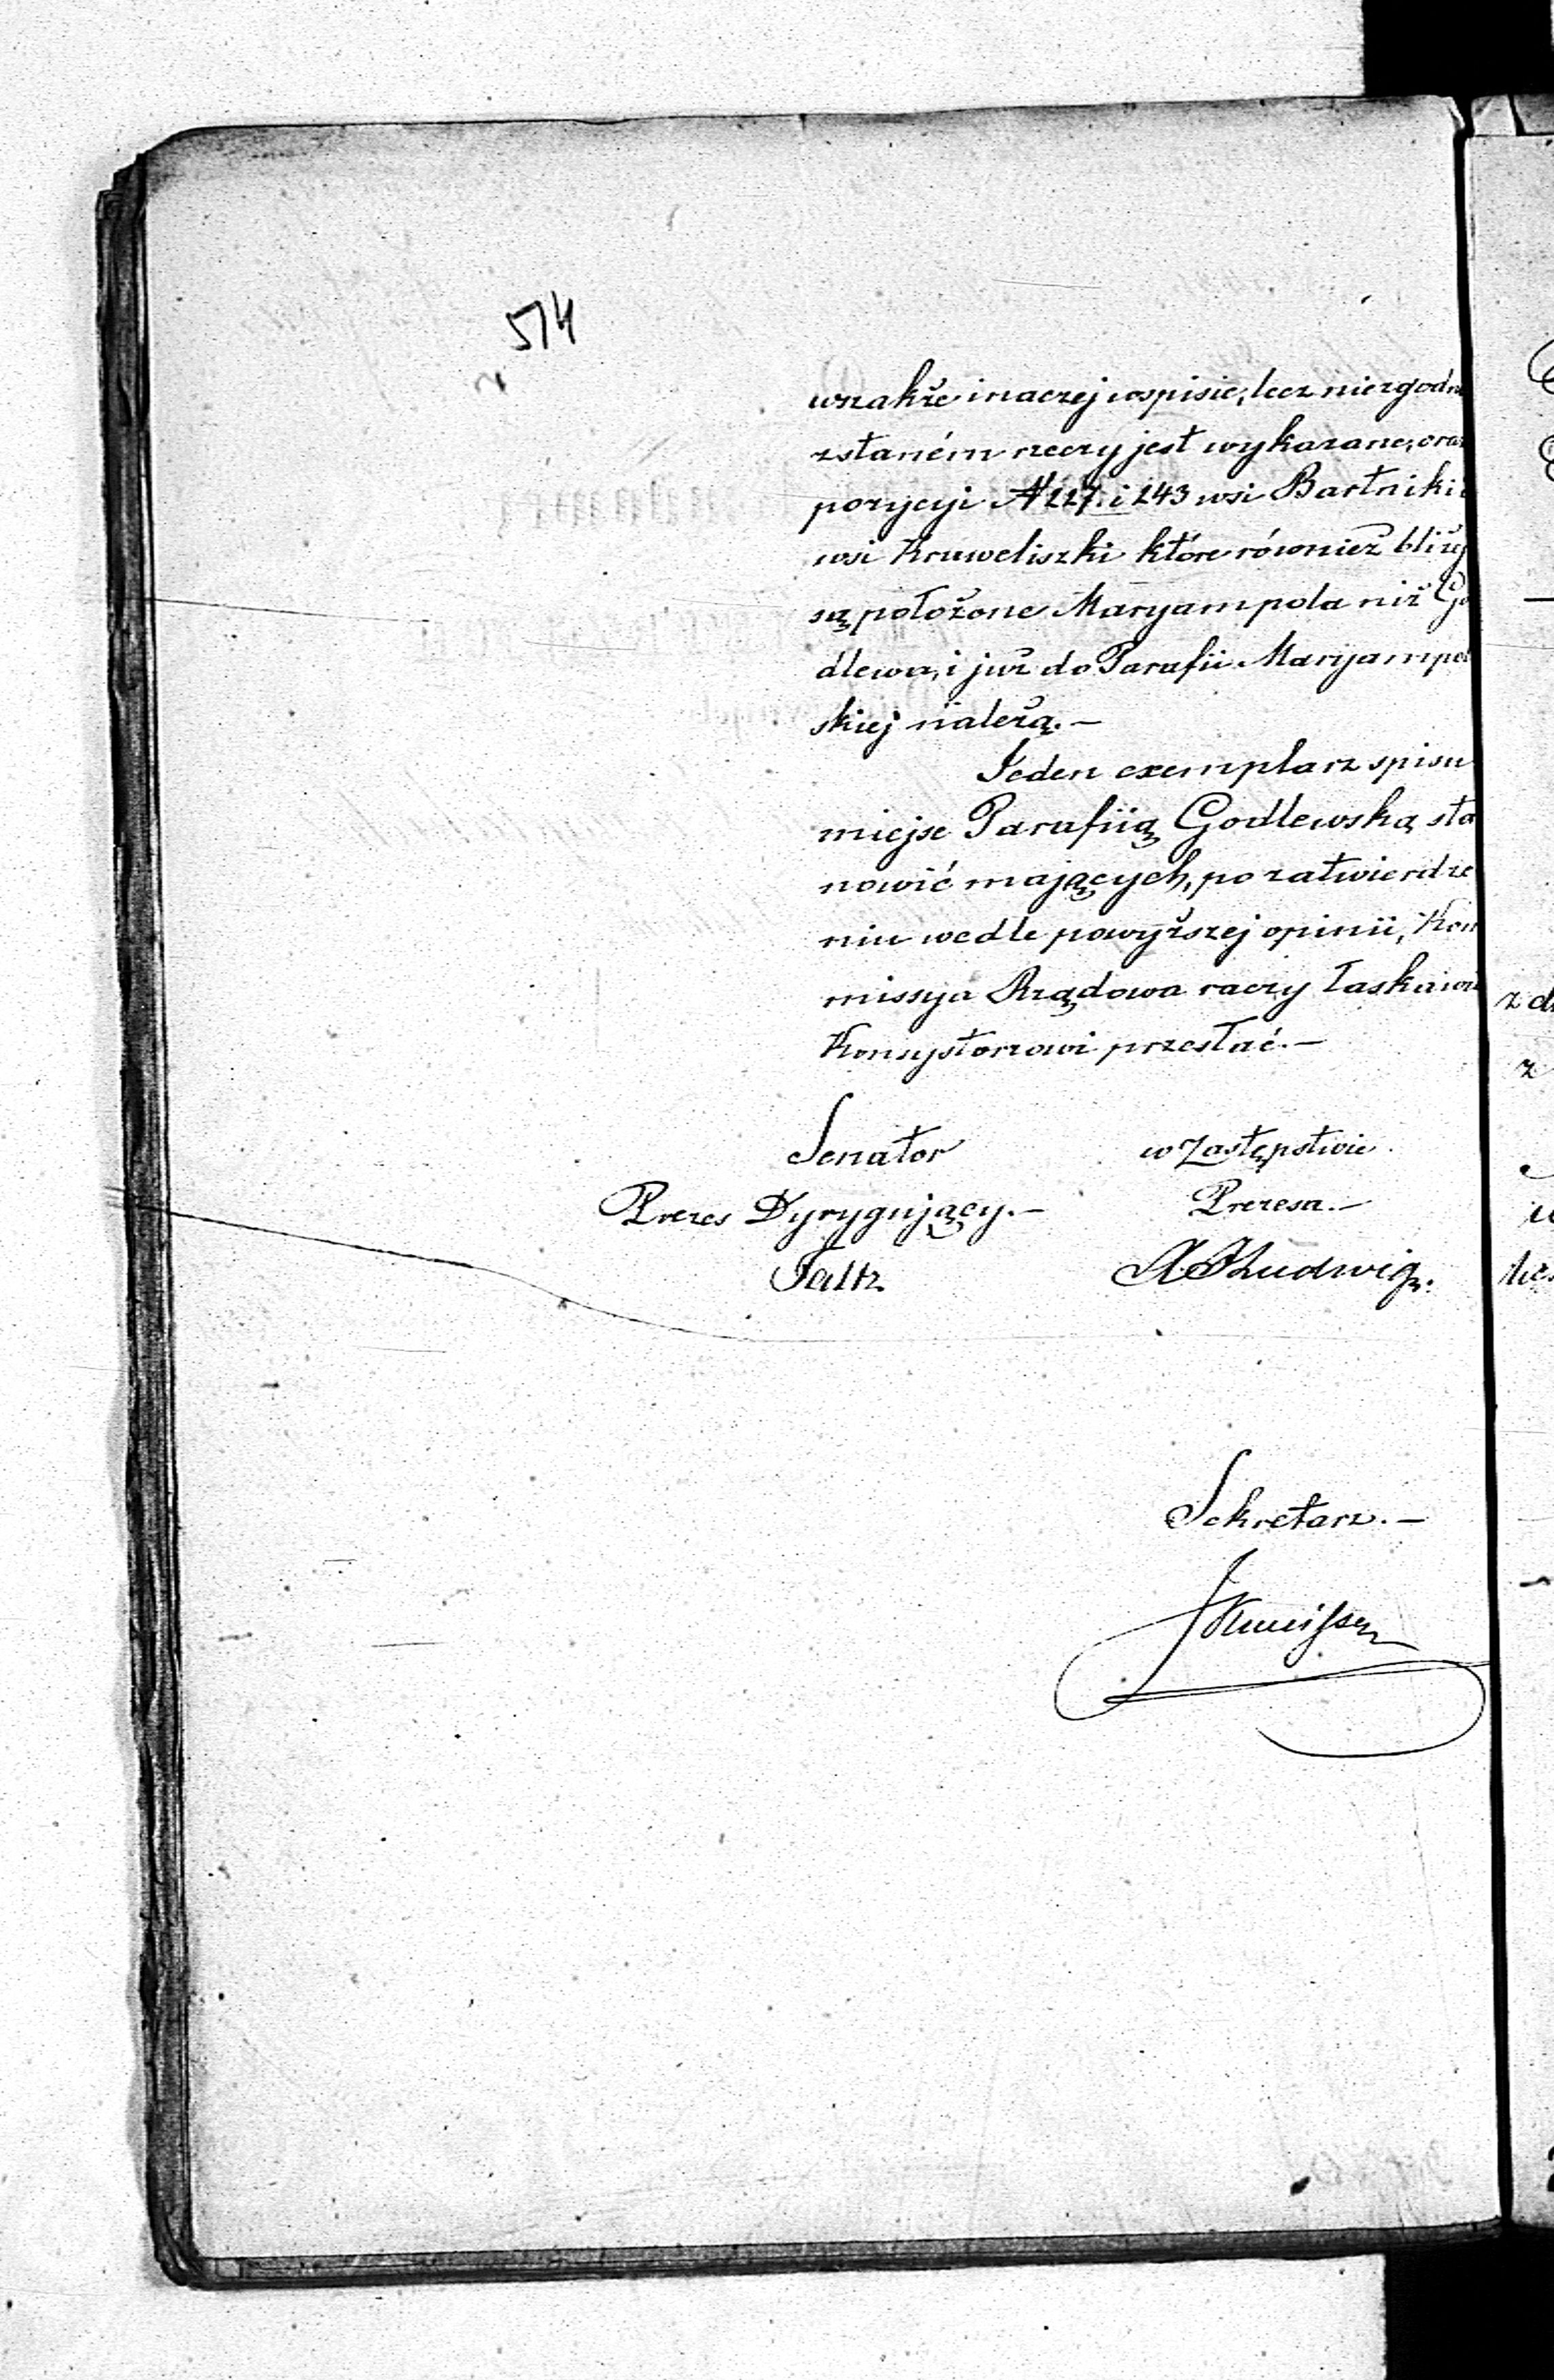 574
wszakże inaczej w spisie, lecz niezgodn
z staném rzeczy jest wykazane, oraz
pozycyi N 227. i 243 wsi Bartniki i
wsi Kruweliszki które również bliżej
są położone Maryampola niż Go
dlewa, i już do Parafii Maryampol
skiej należą. —
Jeden exemplarz spisu
miejsc Parafiią Godlewską sta
nowić mających, po zatwierdze
niu wedle powyższej opinii, Kom
missya Rządowa raczy łaskawie
Konsystorzowi przesłać. —
Senator w Zastępstwie
Prezes Dyrygujący. — Prezesa. —
Faltz Ludwig.
Sekretarz. —